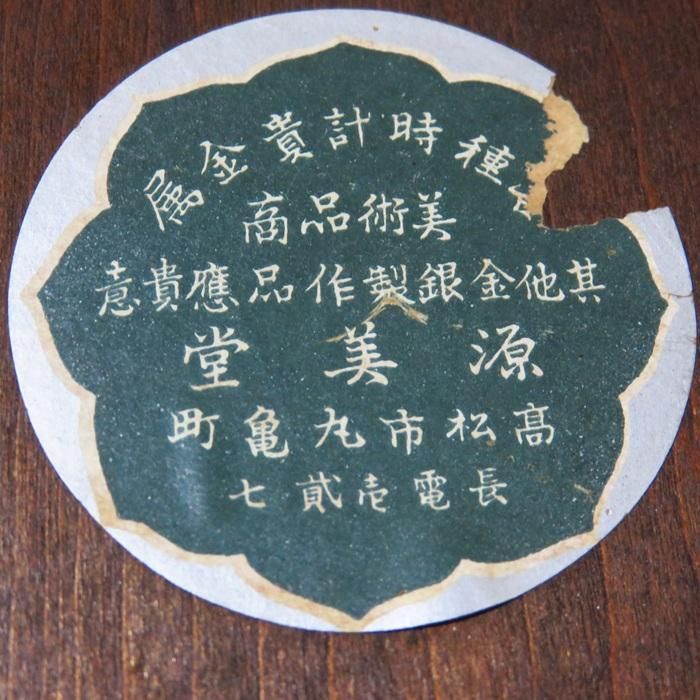 種時計貴金属
美術品商
其他金銀製作品應貴意
源美堂
髙松市丸亀町
長電壱貳七